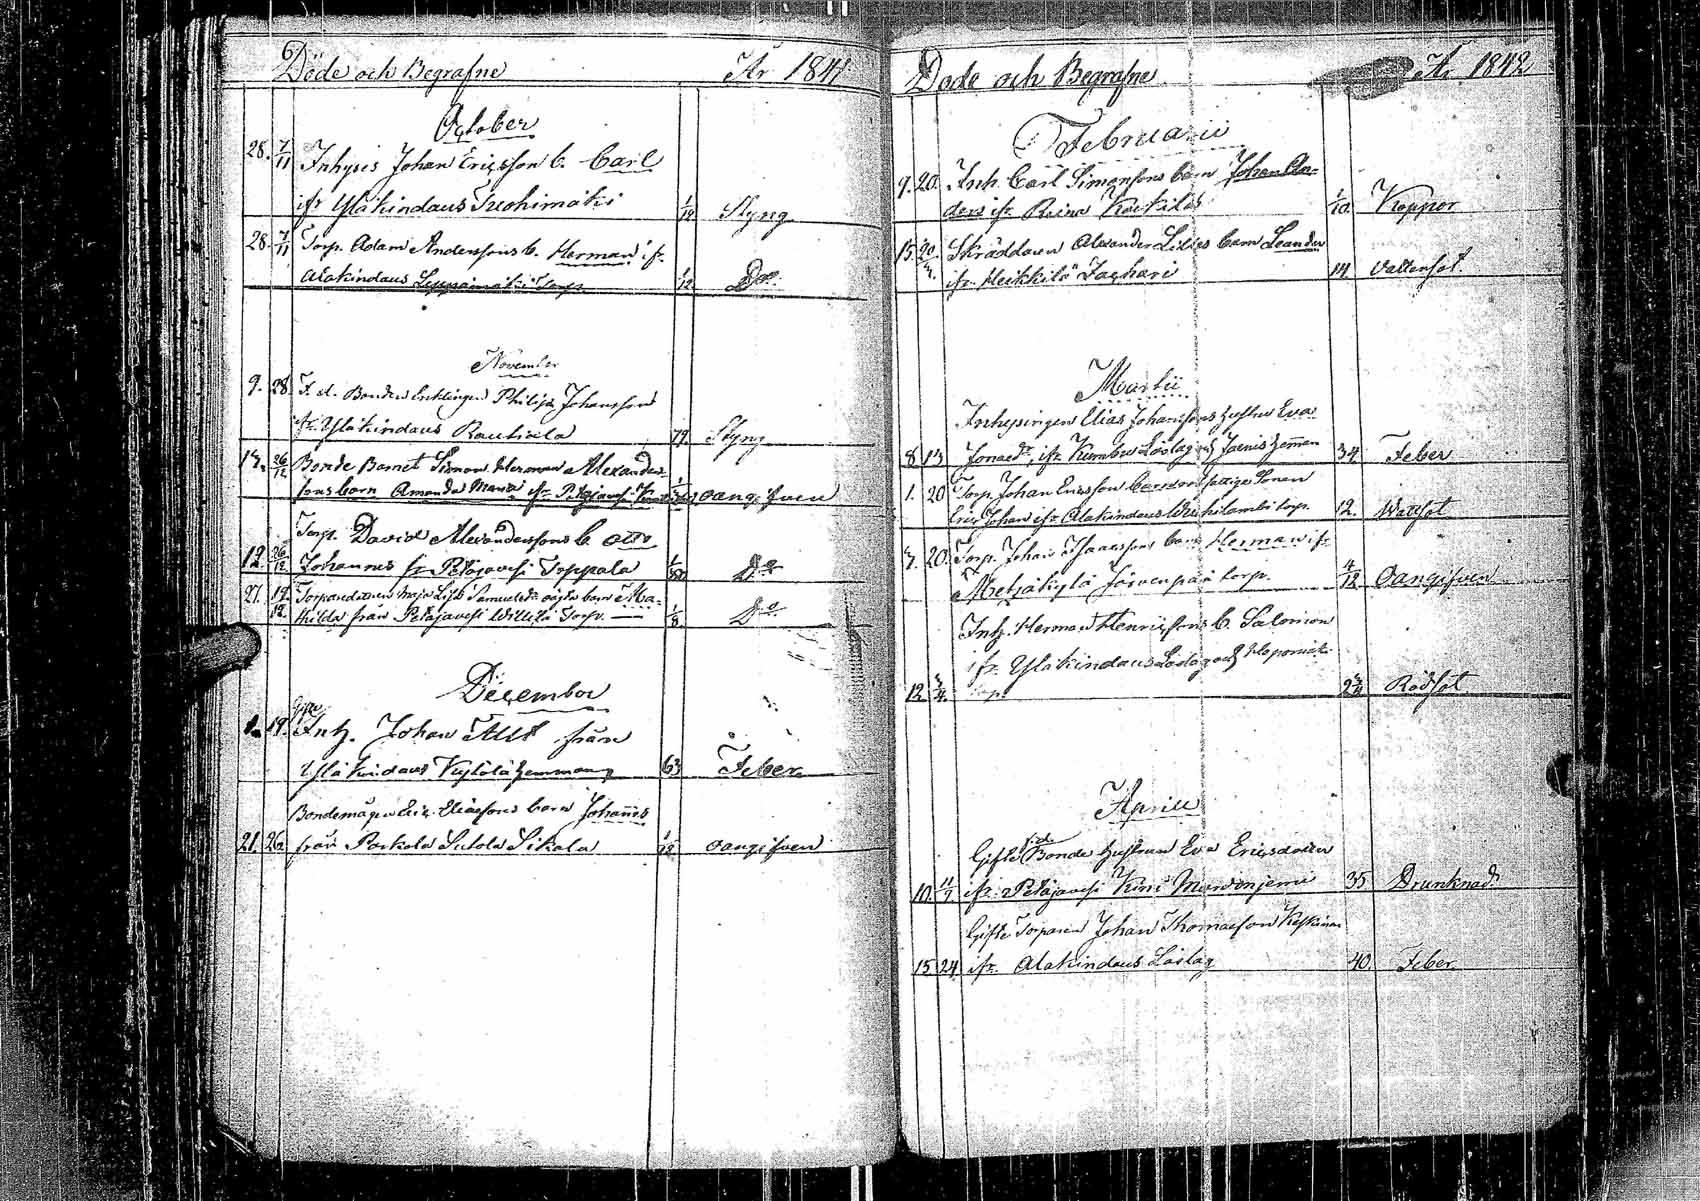 Döde och Begrafne År 1841
October
28. 7/11 Inhyses Johan Ericsson b. Carl
ifr Yläkindaus Tuohimäki 1/12 Styng
28. 7/11 Torp. Adam Anderssons b. Herman ifr.
Alakindaus Leppämäki Torp 1/12 Do
November
9. 28 F. d. Bonden Enklingen Philip Johansson
ifr. Yläkindaus Rautiala 79. Styng
13. 26/12 Bonde Barnet Simon Herman Alexanders
sons barn Amanda Maria ifr Petäjävesi oangifven
Torp. David Alexanderssons b. Otto
12. 26/12 Johannes fr Petäjävesi Toppala Do
27. 19/12 Torparedottren Maja Lisb Samuelsdr oägta barn Ma-
thilda från Petäjävesi Willilä Torp. 1/8. Do
December
1. 19. Gifte
Inh. Johan Allt från
Yläkindaus Kylölä hemman 63 Feber
Bondemågen Eric Eliassons barn Johannes
21. 26. från Parkola Sutola Sikala 1/12 oangifven
Döde och Begrafne År 1842
Februarii
9. 20. Inh. Carl Simonsons barn Johan An-
ders ifr. Reinu Kaukila 1/10. Koppor
15. 20/4. Skräddaren Alexander Lilies barn Leander
ifr. Heikkilä Zachari 14 Vattensot.
Martii
Inhysingen Elias Johanssons hustru Eva
8 13 Jonaedr, ifr. Kumbu Löslag 34 Feber
1. 20 Torp. Johan Ericsson Sonen
Eric Johan ifr Alakindaus torp. 12. Wattsot
7. 20. Torp. Johan Isaacssons barn Herman ifr
Metsäkylä Joivenpää torp. 4/12 Oangifven
Inh. Herman Henricssons b. Salomon
ifr. Yläkindaus Löslag och
12 3/4. torp. 2 Rödsot
Aprill
Gifte Bonde hustrun Eva Ericsdotter
10. ifr. Petäjävesi Kini 35 Drunknad
Gifte Torparen Johan Thomasson Keskinen
15 24 ifr. Alakindaus Löslag 40. Feber